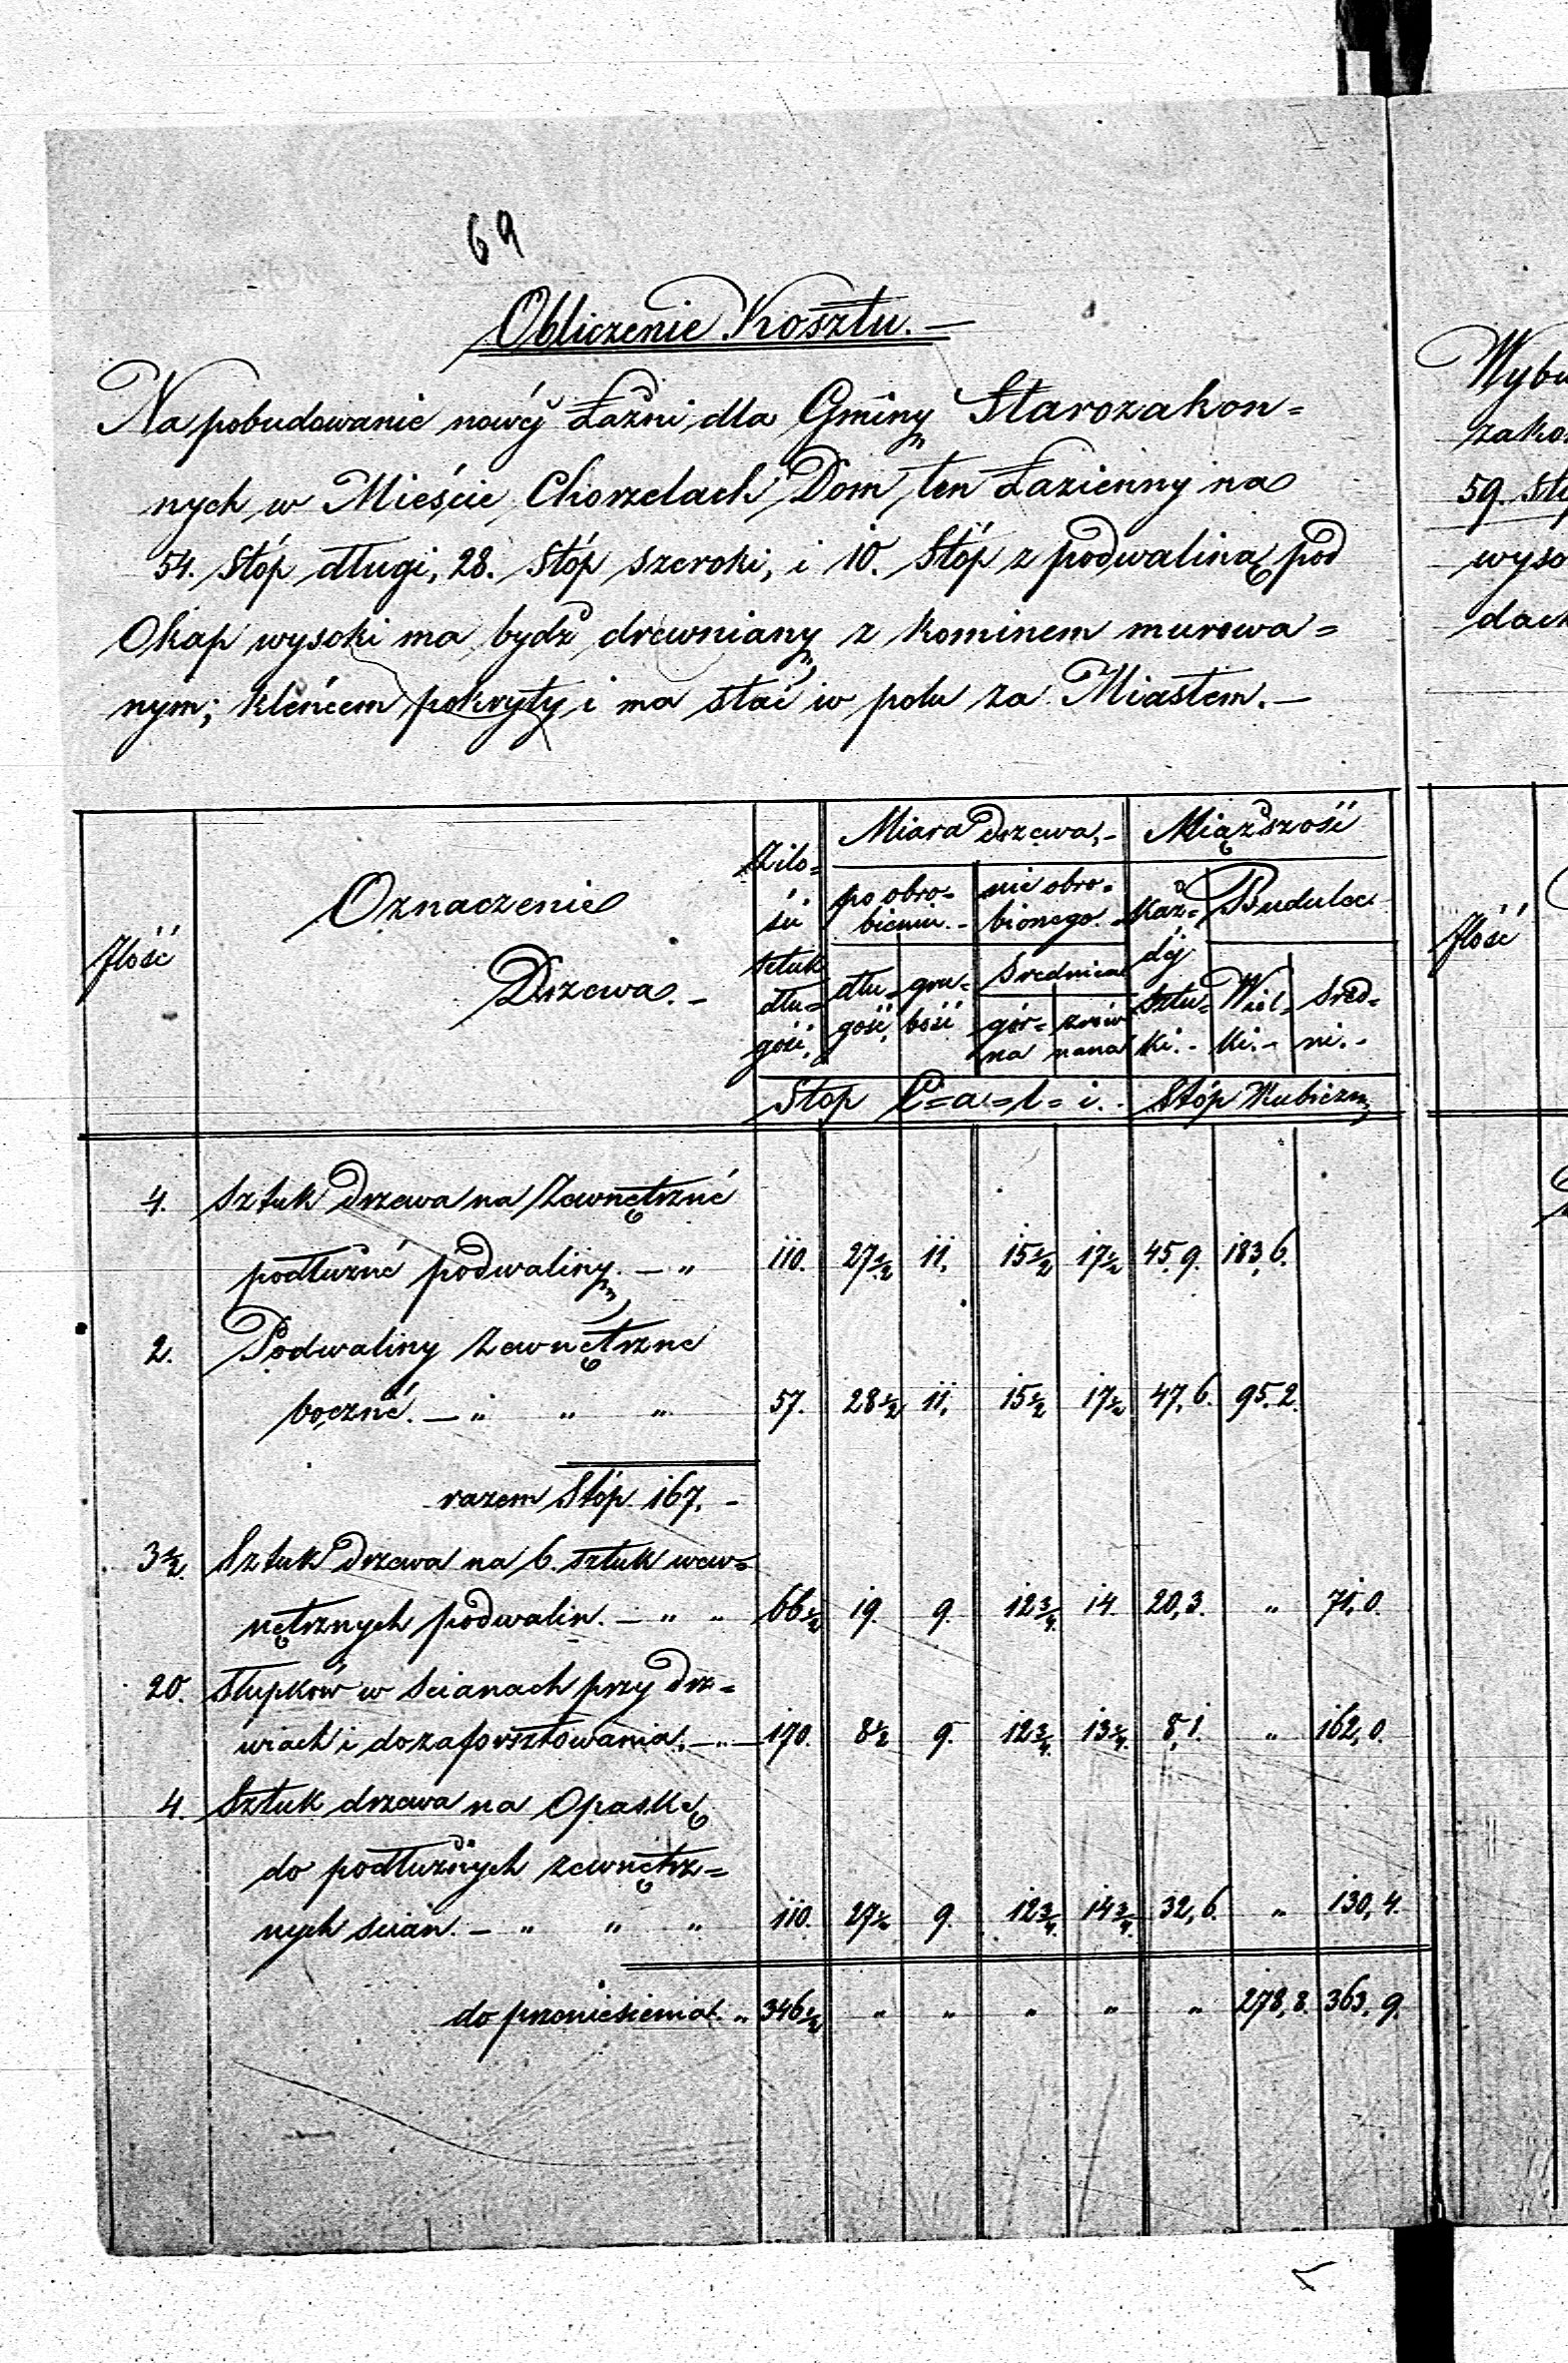 69
Obliczenie Kosztu. —
Na pobudowanie nowéj Łaźni dla Gminy Starozakon=
nych w Mieście Chorzelach Dom ten Łazienny na
54. Stóp długi, 28. Stóp szeroki, i 10. Stóp z podwaliną pod
Okap wysoki ma bydź drewniany z kominem murowa=
nym; kleńcem pokryty i ma stać w polu za Miastem. —
Ilość
Oznaczenie
Drzewa. —
Miara Drzewa, —
Miąższość
po obro=
bieniu. —
nie obro=
bionego. —
Każ=
déj
Sztu=
ki. —
Budulec
sztuk
dłu=
gość,
dłu=
gość,
gru=
bość
Średnica
gór=
na
zrów
nana
Wiel=
ki. —
Śred=
ni. —
Stop C=a=l=i. — Stóp Kubiczny
4. Sztuk Drzewa na Zewnętrzné
podłużné podwaliny. — „ 110. 27 1/2 11. 15 1/2 17 1/2 45,9. 183,6.
2. Podwaliny Zewnętrzne
boczné. — „ „ „ 57. 28 1/2 11. 15 1/2 17 1/2 47,6. 95,2.
razem Stóp 167. —
3 1/2. Sztuk Drzewa na 6. sztuk wew=
nętrznych podwalin. — „ „ 66 1/2 19. 9. 12 3/4. 14. 20,3. „ 71,0.
20. Słupków w ścianach przy Drz=
wiach i do zaforsztowania. — „ — 170. 8 1/2 9. 12 3/4. 13 1/4. 8,1. „ 162,0.
4. Sztuk drzewa na Opaskę
do podłużnych zewnętrz=
nych ścian. — „ „ „ 110. 27 1/2 9. 12 3/4. 14 3/4. 32,6. „ 130,4.
do przeniesienia. „ 346 1/2 „ „ „ „ „ 278,8. 363,9.
59.
Ilość